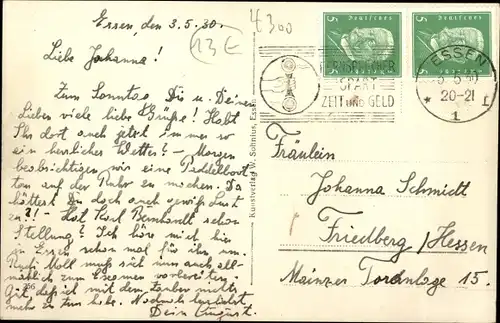 Essen, den 3.5.30.
4.300
13E
Liebe Johanna!
Zum Sonntag Dir u. Deinen
Lieben viele liebe Grüße! Habt
Ihr dort auch jetzt immer so
ein herrliches Wetter? – Morgen
beabsichtigen wir eine Paddelboot-
tour auf der Ruhr zu machen. Da
hättest Du doch auch gewiß Lust
zu?! – Hat Karl Bernhardt schon
Stellung? Ich höre mich hier
in Essen schon mal für ihn um.
Rudi Moll muß sich nun auch all-
mählich zum Examen vorbereiten.
Gut, daß ich mit dem Zauber nichts
mehr zu tun habe. Nochmals herzlichst
Dein August.
256
Kunstverlag W. Sohnius, Essen
Deutsches Reich
5 5
Deutsches Reich
5 5
FERNSPRECHER
SPART
ZEIT und GELD
ESSEN
20-21
* 1 r
Fräulein
Johanna Schmidt
Friedberg/Hessen
Mainzer Toranlage 15.